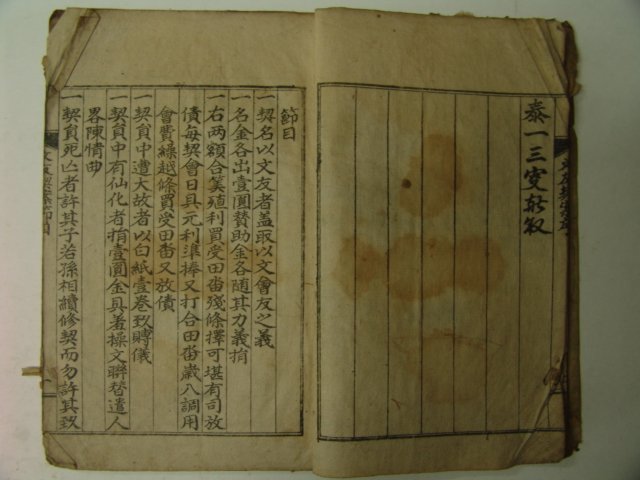 泰一三变家叙
節目
一契名以文友者盖取以文會友之義
一名金各出壹圓賛助金各随其力義捐
一右两額合筭殖利買受田畓殘條擇可堪有司放
債每契會日具元利準捧又打合田畓歲入調用
會費繰越條買受田畓又放債
一契員中遭大故者以白紙壹卷致賻儀
一契員中有仙化者捐壹圓金具羞操文聯替遣人
畧陳情曲
一契員死亡者許其子若孫相續修契而勿許其致